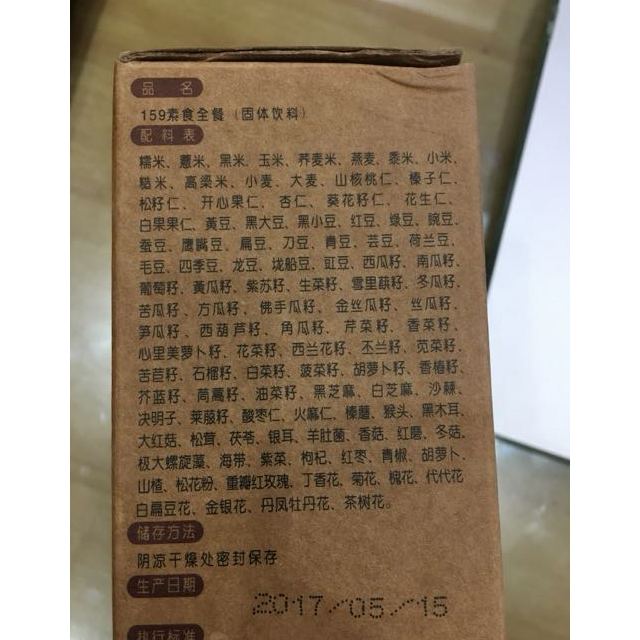 品 名
159素食全餐（固体饮料）
配 料 表
糯米、薏米、黑米、玉米、荞麦米、燕麦、黍米、小米、
糙米、高粱米、小麦、大麦、山核桃仁、榛子仁、
松籽仁、开心果仁、杏仁、葵花籽仁、花生仁、
白果果仁、黄豆、黑大豆、黑小豆、红豆、绿豆、豌豆、
蚕豆、鹰嘴豆、扁豆、刀豆、青豆、芸豆、荷兰豆、
毛豆、四季豆、龙豆、垅船豆、豇豆、西瓜籽、南瓜籽、
葡萄籽、黄瓜籽、紫苏籽、生菜籽、雪里蕻籽、冬瓜籽、
苦瓜籽、方瓜籽、佛手瓜籽、金丝瓜籽、丝瓜籽、
笋瓜籽、西葫芦籽、角瓜籽、芹菜籽、香菜籽、
心里美萝卜籽、花菜籽、西兰花籽、丕兰籽、苋菜籽、
苦苣籽、石榴籽、白菜籽、菠菜籽、胡萝卜籽、香椿籽、
芥蓝籽、茼蒿籽、油菜籽、黑芝麻、白芝麻、沙棘、
决明子、莱菔籽、酸枣仁、火麻仁、榛蘑、猴头、黑木耳、
大红菇、松茸、茯苓、银耳、羊肚菌、香菇、红磨、冬菇、
极大螺旋藻、海带、紫菜、枸杞、红枣、青椒、胡萝卜、
山楂、松花粉、重瓣红玫瑰、丁香花、菊花、槐花、代代花
白扁豆花、金银花、丹凤牡丹花、茶树花。
储存方法
阴凉干燥处密封保存
生产日期
2017/05/15
执行标准